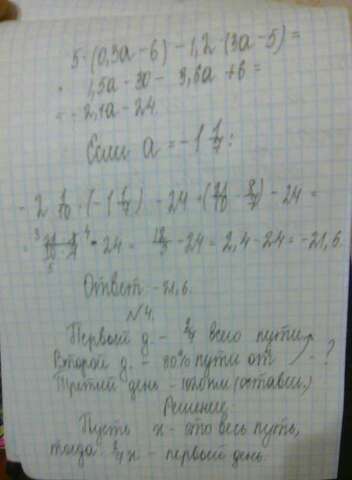 5·(0,3a-6)-1,2·(3a-5)=
1,5a-30-3,6a+6=
=-2,1a-24.
Если a=-1 1/7:
-2 1/10·(-1 1/7)-24=(21/10·8/7)-24=
=12/5-24=2,4-24=-21,6.
Ответ: -21,6.
№4.
Первый д. - 2/7 всего пути
Второй д. - 80% пути от ?
Третий день - (оставш.)
Решение
Пусть x - это весь путь,
тогда 2/7x - первый день.